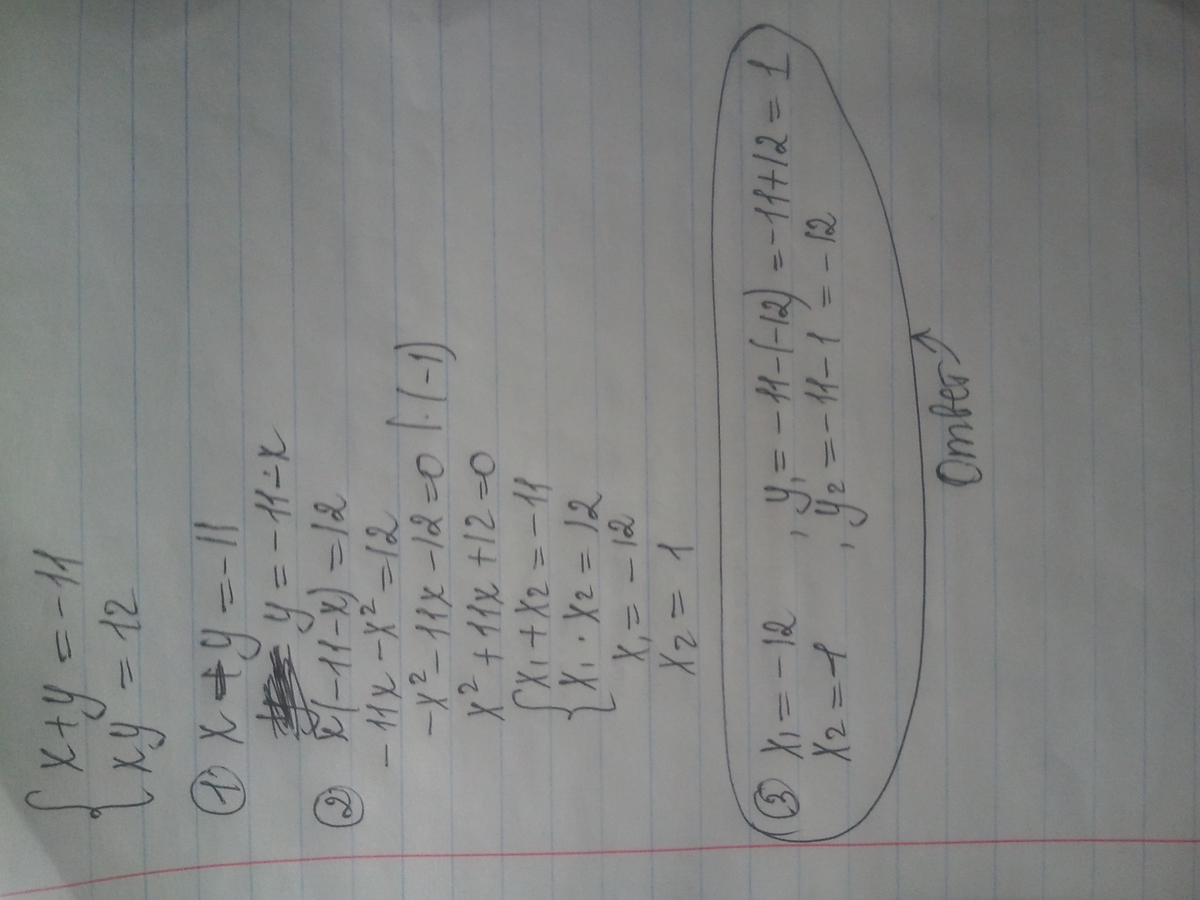 { x + y = -11
{ xy = 12
① x + y = -11
y = -11 - x
② x(-11-x) = 12
-11x - x² = 12
-x² - 11x - 12 = 0 | · (-1)
x² + 11x + 12 = 0
{ x₁ + x₂ = -11
{ x₁ · x₂ = 12
x₁ = -12
x₂ = 1
③ x₁ = -12 , y₁ = -11-(-12) = -11+12 = 1
x₂ = 1 , y₂ = -11-1 = -12
Ответ